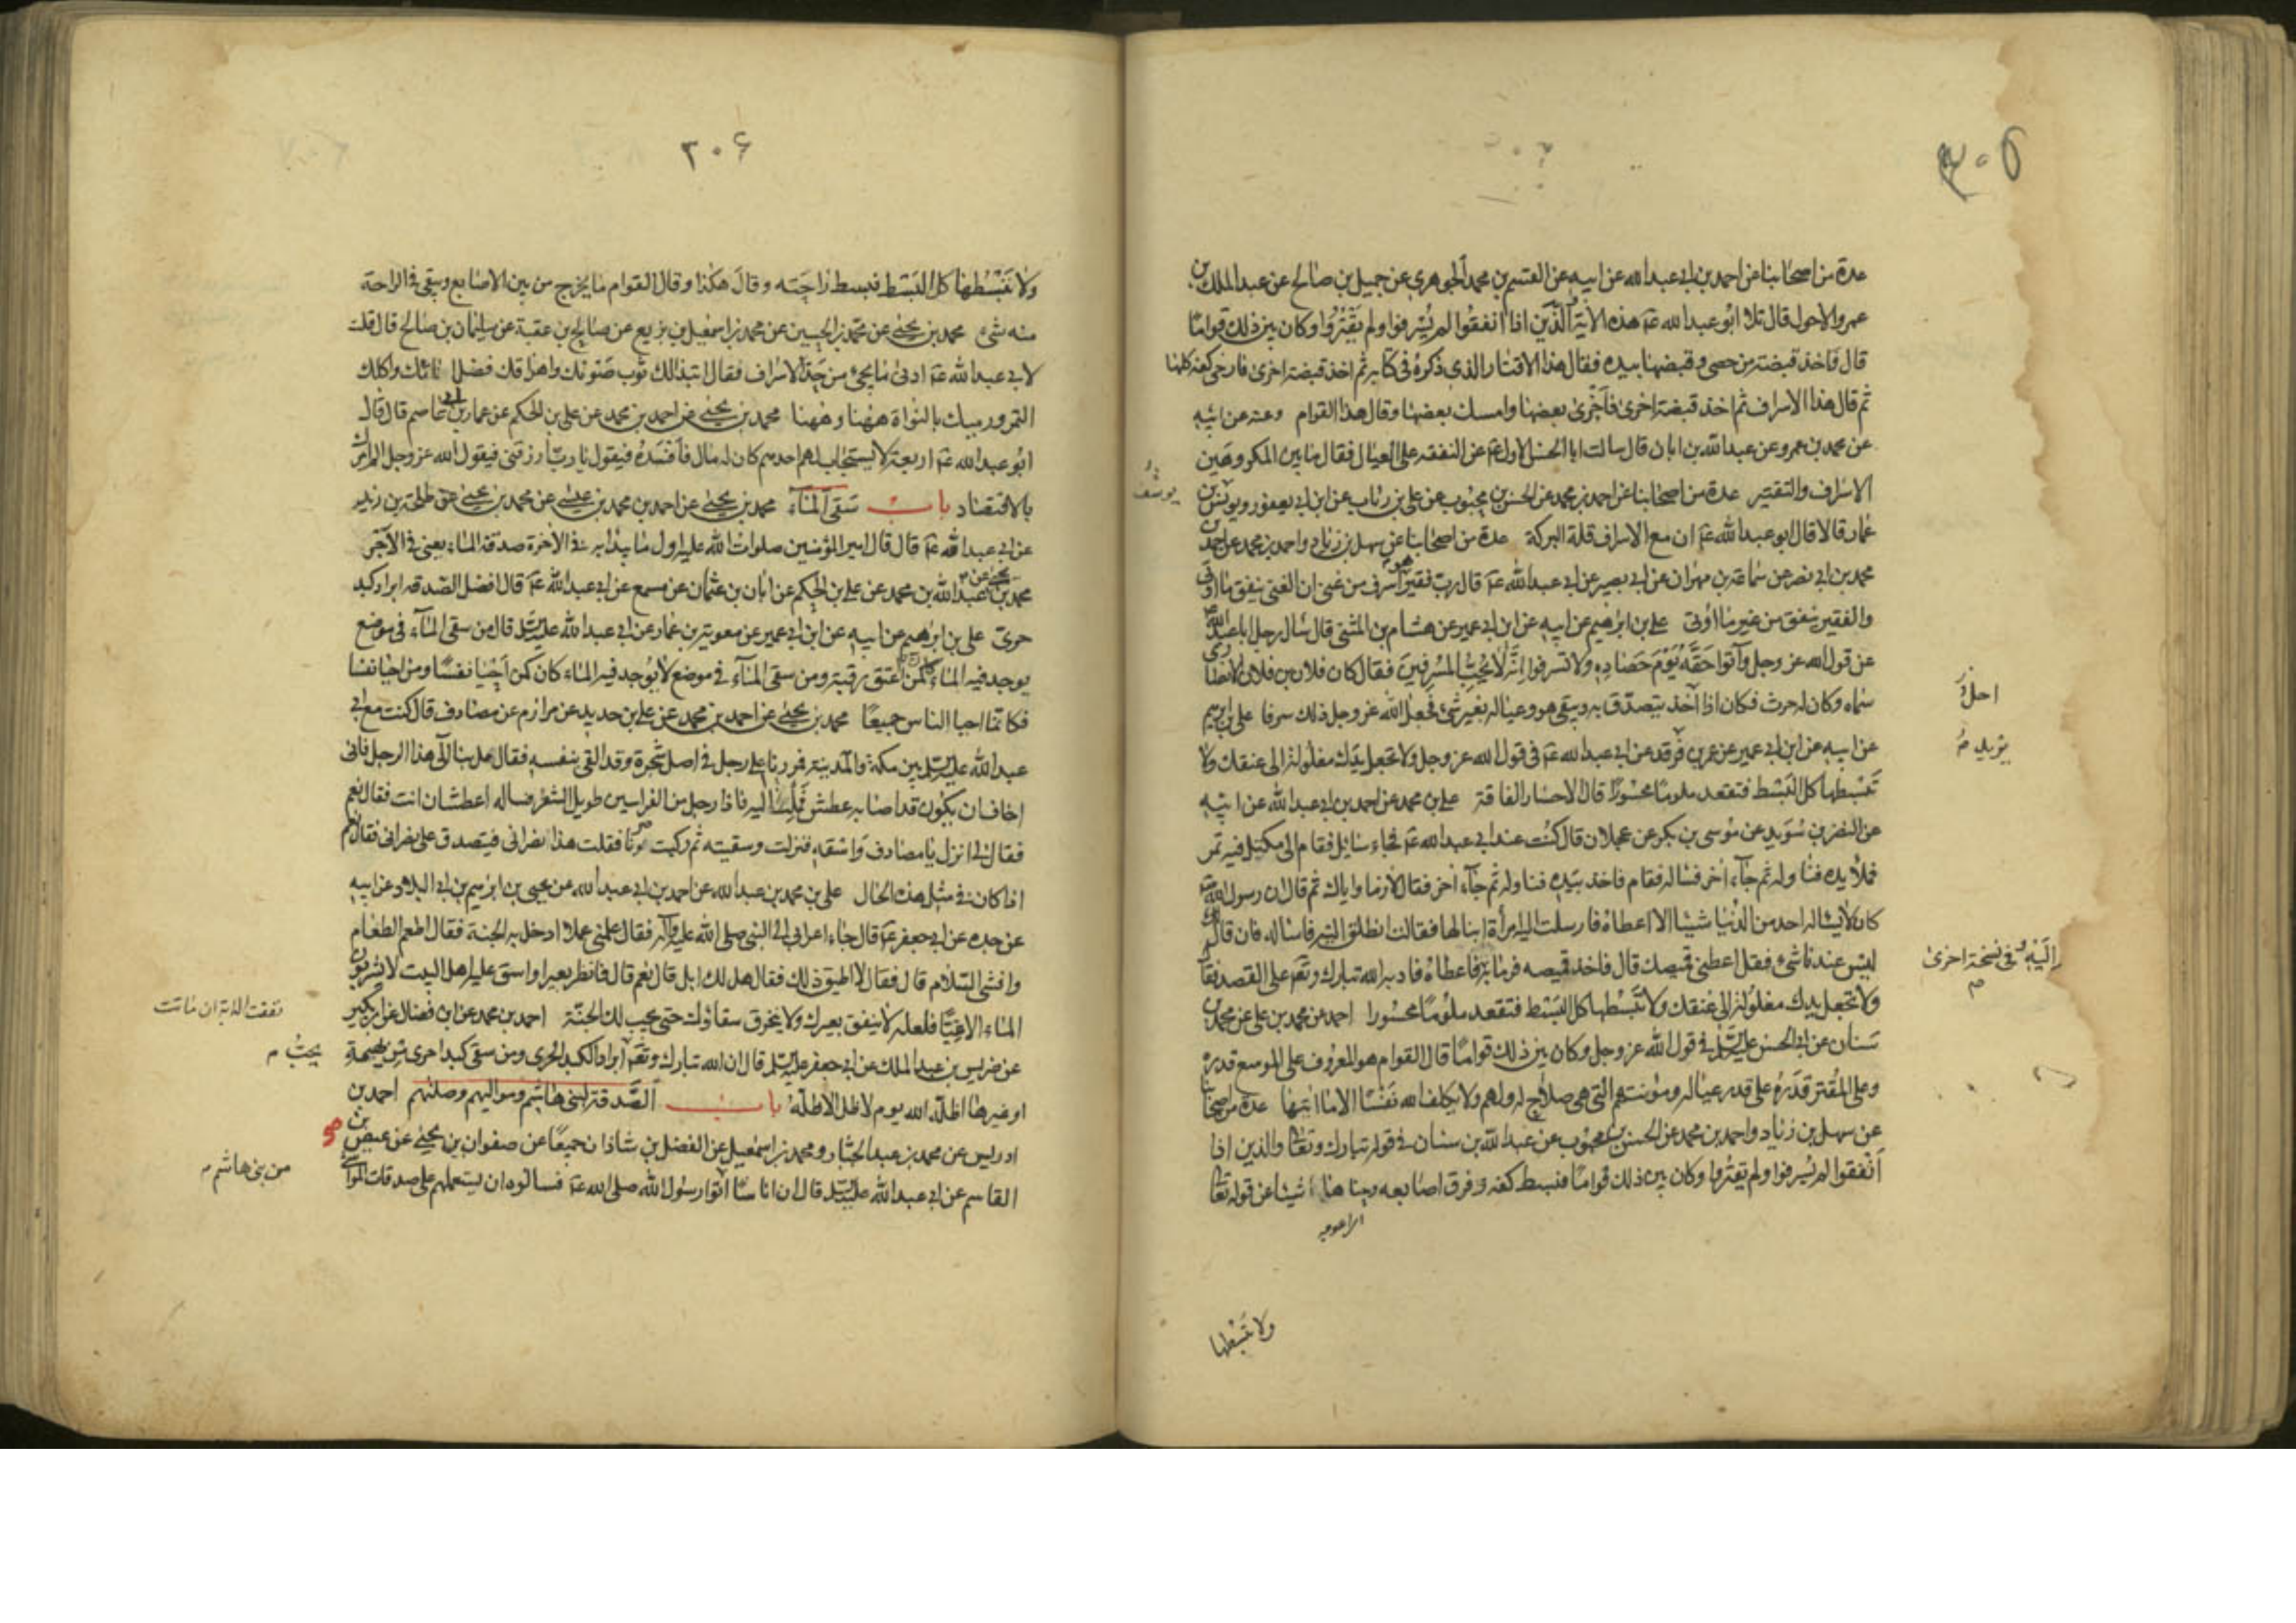 ٣٠٥
عدة من اصحابنا عن احمد بن ابي عبد الله عن ابيه عن القسم بن محمد الجوهري عن جميل بن صالح عن عبد الملك بن
عمرو الاحول قال تلا ابو عبد الله عۤ هذه الاية الذين اذا انفقوا لم يسرفوا ولم يقتروا وكان بين ذلك قواما
قال فاخذ قبضة من حصى وقبضها بيده فقال هذا الاقتار الذي ذكره في كتابه ثم اخذ قبضة اخرى فارخى كفه كلها
ثم قال هذا الاسراف ثم اخذ قبضة اخرى فارخى بعضها وامسك بعضها وقال هذا القوام وعنه عن ابيه
عن محمد بن عمرو عن عبد الله بن ابان قال سالت ابا الحسن الاول عۤ عن النفقه على العيال فقال ما بين المكروهين
الاسراف والتقتير عدة من اصحابنا عن احمد بن محمد عن الحسن بن محبوب عن علي بن رئاب عن ابن ابي يعفور ويونس بن
يوسف
عمار قالا قال ابو عبد الله عۤ ان مع الاسراف قلة البركة عدة من اصحابنا عن سهل بن زياد واحمد بن محمد عن احمد بن
محمد بن ابي نصر عن سماعة بن مهران عن ابي بصير عن ابي عبد الله عۤ قال رب فقير هو اسرف من غني ان الغني ينفق مما اوتي
والفقير ينفق من غير ما اوتي علي بن ابرهيم عن ابيه عن ابن ابي عمير عن هشام بن المثنى قال سال رجل ابا عبد الله عۤ
عن قول الله عز وجل وآتوا حقه يوم حصاده ولا تسرفوا انه لا يحب المسرفين فقال كان فلان بن فلان الانصاري
سماه وكان له حرث فكان اذا اخذ يتصدق به ويبقى هو وعياله بغير شئ فجعل الله عز وجل ذلك سرفا علي بن ابرهيم
احل
يزيد م
عن ابيه عن ابن ابي عمير عن عمر بن فرقد عن ابي عبد الله عۤ في قول الله عز وجل ولا تجعل يدك مغلولة الى عنقك ولا
تبسطها كل البسط فتقعد ملوما محسورا قال الاحسار الفاقة علي بن محمد عن احمد بن ابي عبد الله عن ابيه
عن النضر بن سويد عن موسى بن بكر عن عجلان قال كنت عند ابي عبد الله عۤ فجاء سايل فقام الى مكتل فيه تمر
فملأ يده فناوله ثم جآء اخر فساله فقام فاخذ بيده فناوله ثم جآء اخر فقال الله رازقنا واياك ثم قال ان رسول الله صۤ
كان لا يساله احد من الدنيا شيئا الا اعطاه فارسلت اليه امرأة ابنا لها فقالت انطلق اليه فاساله فان قال لك
ليس عندنا شئ فقل اعطني قميصك قال فاخذ قميصه فرمابه فاعطاه فادبه الله تبارك وتعۤ على القصد فقال
اليه وفي نسخة اخرى
م
ولا تجعل يدك مغلولة الى عنقك ولا تبسطها كل البسط فتقعد ملوما محسورا احمد عن محمد بن علي عن محمد بن
سنان عن ابي الحسن عليه السلام في قول الله عز وجل وكان بين ذلك قواما قال القوام هو المعروف على الموسع قدره
وعلى المقتر قدره على قدر عياله ومونتهم التي هي صلاح له ولهم ولا يكلف الله نفسا الا ما اتيها عدة من اصحابنا
عن سهل بن زياد واحمد بن محمد عن الحسن بن محبوب عن عبد الله بن سنان في قوله تبارك وتعالى والذين اذا
انفقوا لم يسرفوا ولم يقتروا وكان بين ذلك قواما فبسط كفه وفرق اصابعه وحناها شيئا عن قوله تعالى
ولا تبسطها
٣٠۶
ولا تبسطها كل البسط فبسط راحته وقال هكذا وقال القوام ما يخرج من بين الاصابع ويبقى في الراحة
منه شئ محمد بن يحيى عن محمد بن الحسين عن محمد بن اسمعيل بن بزيع عن صالح بن عقبة عن سليمان بن صالح قال قلت
لابي عبد الله عۤ ادنى ما يجئ من حد الاسراف فقال ابتذالك ثوب صونك واهراقك فضل انائك واكلك
التمر ورميك بالنواة ههنا وههنا محمد بن يحيى عن احمد بن محمد عن علي بن الحكم عن عمار بن ابي عاصم قال قال
ابو عبد الله عۤ اربعة لا يستجاب لهم احدهم كان له مال فافسده فيقول يا رب ارزقني فيقول الله عز وجل الم امرك
بالاقتصاد باب سقى المآء محمد بن يحيى عن احمد بن محمد بن عيسى عن محمد بن يحيى عن طلحة بن زيد
عن ابي عبد الله عۤ قال قال امير المؤمنين صلوات الله عليه اول ما يبدأ به في الاخرة صدقة الماء يعني في الاجر
محمد بن يحيى عن عبد الله بن محمد عن علي بن الحكم عن ابان بن عثمان عن مسمع عن ابي عبد الله عۤ قال افضل الصدقه ابراد كبد
حرى علي بن ابرهيم عن ابيه عن ابن ابي عمير عن معوية بن عمار عن ابي عبد الله عليه السلام قال من سقى المآء في موضع
يوجد فيه الماء كان كمن اعتق رقبة ومن سقى المآء في موضع لا يوجد فيه الماء كان كمن احيا نفسا ومن احيا نفسا
فكانما احيا الناس جميعا محمد بن يحيى عن احمد بن محمد عن علي بن حديد عن مرازم عن مصادف قال كنت مع ابي
عبد الله عليه السلام بين مكة والمدينة فمررنا على رجل في اصل شجرة وقد القى بنفسه فقال مل بنا الى هذا الرجل فاني
اخاف ان يكون قد اصابه عطش فملنا اليه فاذا رجل من الفراسين طويل الشعر فساله اعطشان انت فقال نعم
فقال لي انزل يا مصادف واسقه فنزلت وسقيته ثم ركبت وسرنا فقلت هذا نصراني فيتصدق على نصراني فقال نعم
اذا كان في مثل هذه الحال علي بن محمد بن عبد الله عن احمد بن ابي عبد الله عن يحيى بن ابرهيم بن ابي البلاد عن ابيه
عن جده عن ابي جعفر عۤ قال جاء اعرابي الى النبي صلى الله عليه وآله فقال علمني عملا ادخل به الجنة فقال اطعم الطعام
وافش السلام قال فقال لا اطيق ذلك فقال هل لك ابل قال نعم قال فانظر بعيرا واسق عليه اهل البيت لا يشربون
الماء الا غبا فلعله لا ينفق بعيرك ولا ينخرق سقاؤك حتى تجب لك الجنة احمد بن محمد عن ابن فضال عن ابن بكير
نفقت الدابة ان ماتت
عن ضريس بن عبد الملك عن ابي جعفر عليه السلام قال ان الله تبارك وتعۤ ابراد الكبد الحرى ومن سقى كبدا حرى من بهيمة
يحب م
او غيرها اظله الله يوم لا ظل الا ظله باب الصدقة لبني هاشم ومواليهم وصلتهم احمد بن
ادريس عن محمد بن عبد الجبار ومحمد بن اسمعيل عن الفضل بن شاذان جميعا عن صفوان بن يحيى عن عيص بن
القاسم عن ابي عبد الله عليه السلام قال ان اناسا اتوا رسول الله صلى الله عۤ فسالوه ان يستعملهم على صدقات المواشي
من بني هاشم م